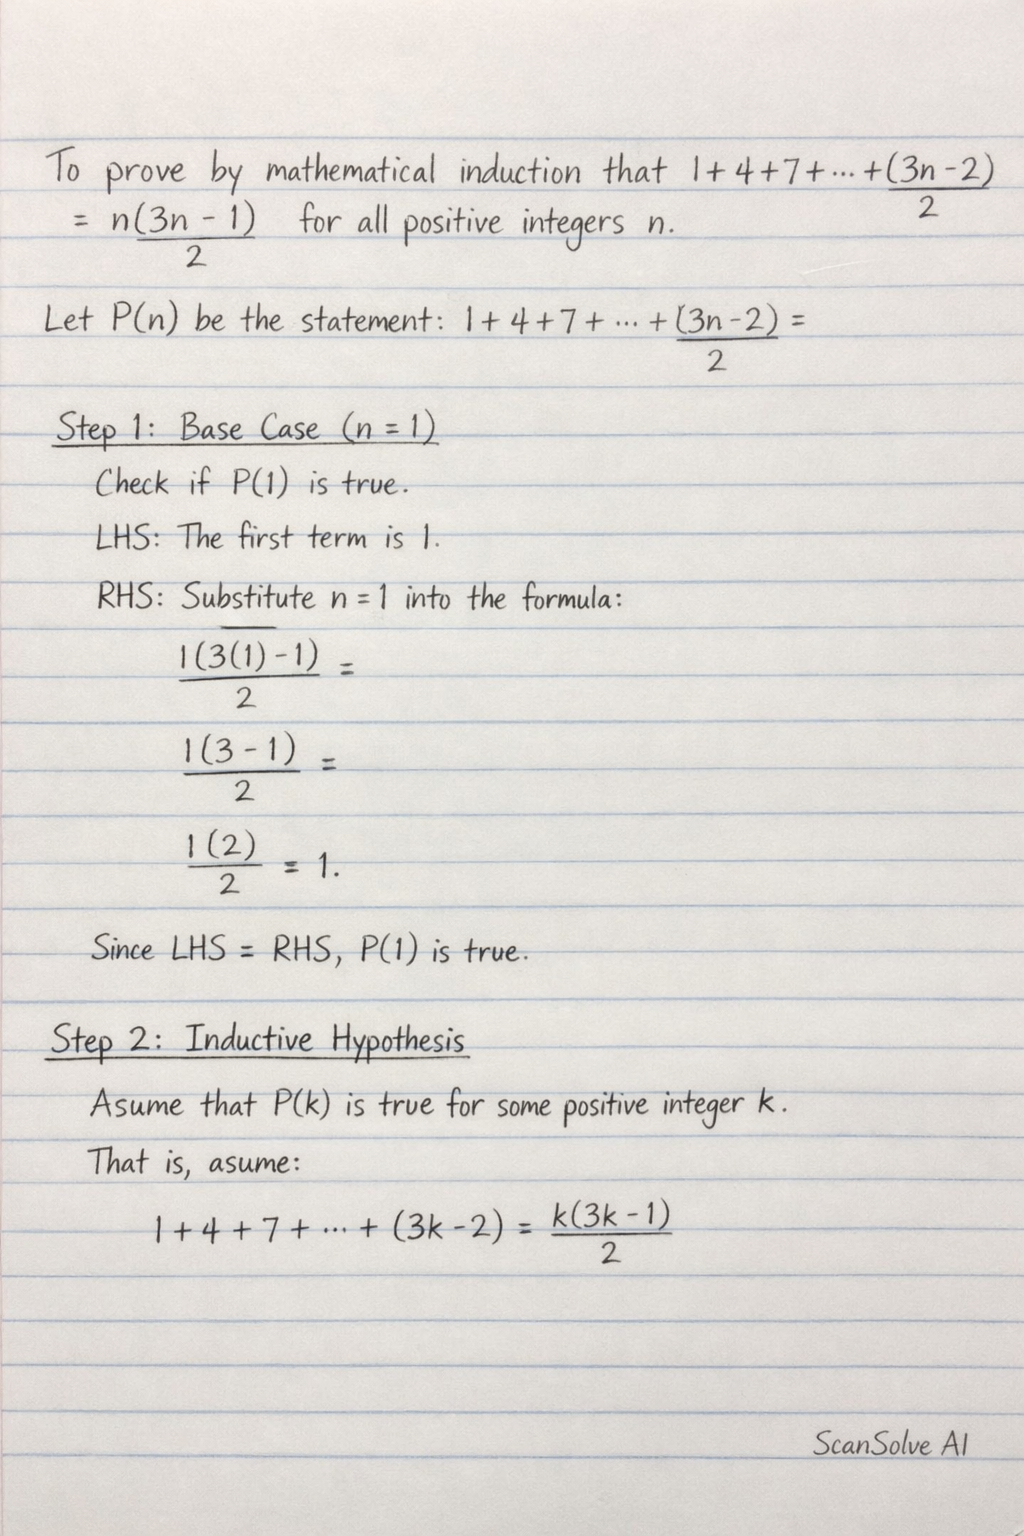 To prove by mathematical induction that 1+4+7+...+(3n-2)/2
= n(3n-1)/2 for all positive integers n.
Let P(n) be the statement: 1+4+7+...+(3n-2)/2 =
Step 1: Base Case (n = 1)
Check if P(1) is true.
LHS: The first term is 1.
RHS: Substitute n = 1 into the formula:
1(3(1)-1)/2 =
1(3-1)/2 =
1(2)/2 = 1.
Since LHS = RHS, P(1) is true.
Step 2: Inductive Hypothesis
Asume that P(k) is true for some positive integer k.
That is, asume:
1+4+7+...+(3k-2) = k(3k-1)/2
ScanSolve AI